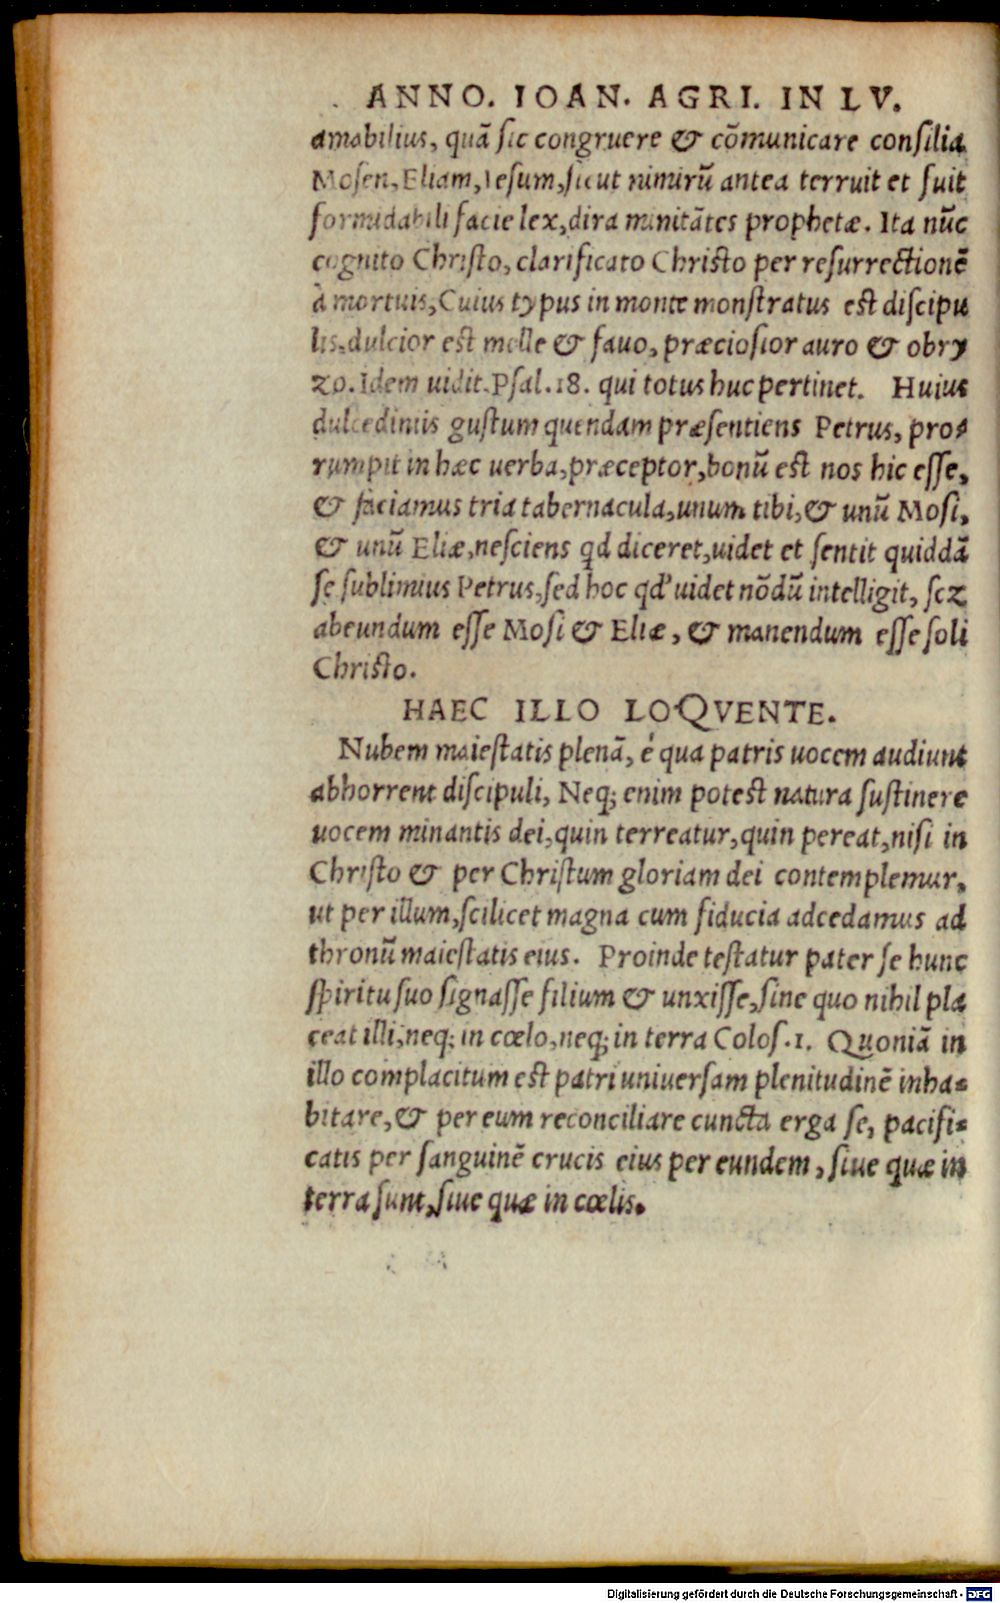 ANNO. IOAN. AGRI. IN LV.
amabilius, quã sic congruere & cõmunicare consilia
Mosen, Eliam, Iesum, sicut nimirũ antea terruit et fuit
formidabili facie lex, dira minitãtes prophetæ. Ita nũc
cognito Christo, clarificato Christo per resurrectionẽ
à mortuis, Cuius typus in monte monstratus est discipu
lis, dulcior est melle & fauo, præciosior auro & obry
zo. Idem uidit Psal. 18. qui totus huc pertinet. Huius
dulcedinis gustum quendam præsentiens Petrus, pro-
rumpit in hæc uerba, præceptor, bonũ est nos hic esse,
& faciamus tria tabernacula, unum tibi, & unũ Mosi,
& unũ Eliæ, nesciens qd diceret, uidet et sentit quiddã
se sublimius Petrus, sed hoc qd' uidet nõdũ intelligit, scz
abeundum esse Mosi & Eliæ, & manendum esse soli
Christo.
HAEC ILLO LOQVENTE.
Nubem maiestatis plenã, è qua patris uocem audiunt
abhorrent discipuli, Neq; enim potest natura sustinere
uocem minantis dei, quin terreatur, quin pereat, nisi in
Christo & per Christum gloriam dei contemplemur,
ut per illum, scilicet magna cum fiducia adcedamus ad
thronũ maiestatis eius. Proinde testatur pater se hunc
spiritu suo signasse filium & unxisse, sine quo nihil pla
ceat illi, neq; in cœlo, neq; in terra Colos. 1. Quoniã in
illo complacitum est patri uniuersam plenitudinẽ inha-
bitare, & per eum reconciliare cuncta erga se, pacifi-
catis per sanguinẽ crucis eius per eundem, siue quæ in
terra sunt, siue quæ in cœlis.
Digitalisierung gefördert durch die Deutsche Forschungsgemeinschaft - DFG